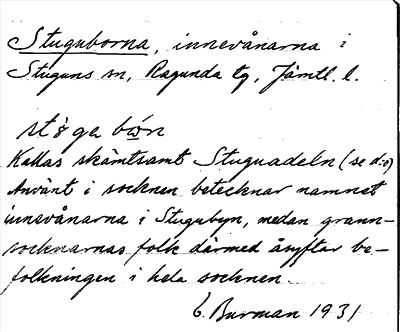 Stuguborna, innevånarna i
Stuguns sn, Ragunda tg, Jämtl. l.
stŏ́ga bo̤n
Kallas skämtsamt Stuguadeln (se d:o)
Använt i socknen betecknar namnet
innevånarna i Stugubyn, medan grann-
socknarnas folk därmed åsyftar be-
folkningen i hela socknen.
E. Burman 1931